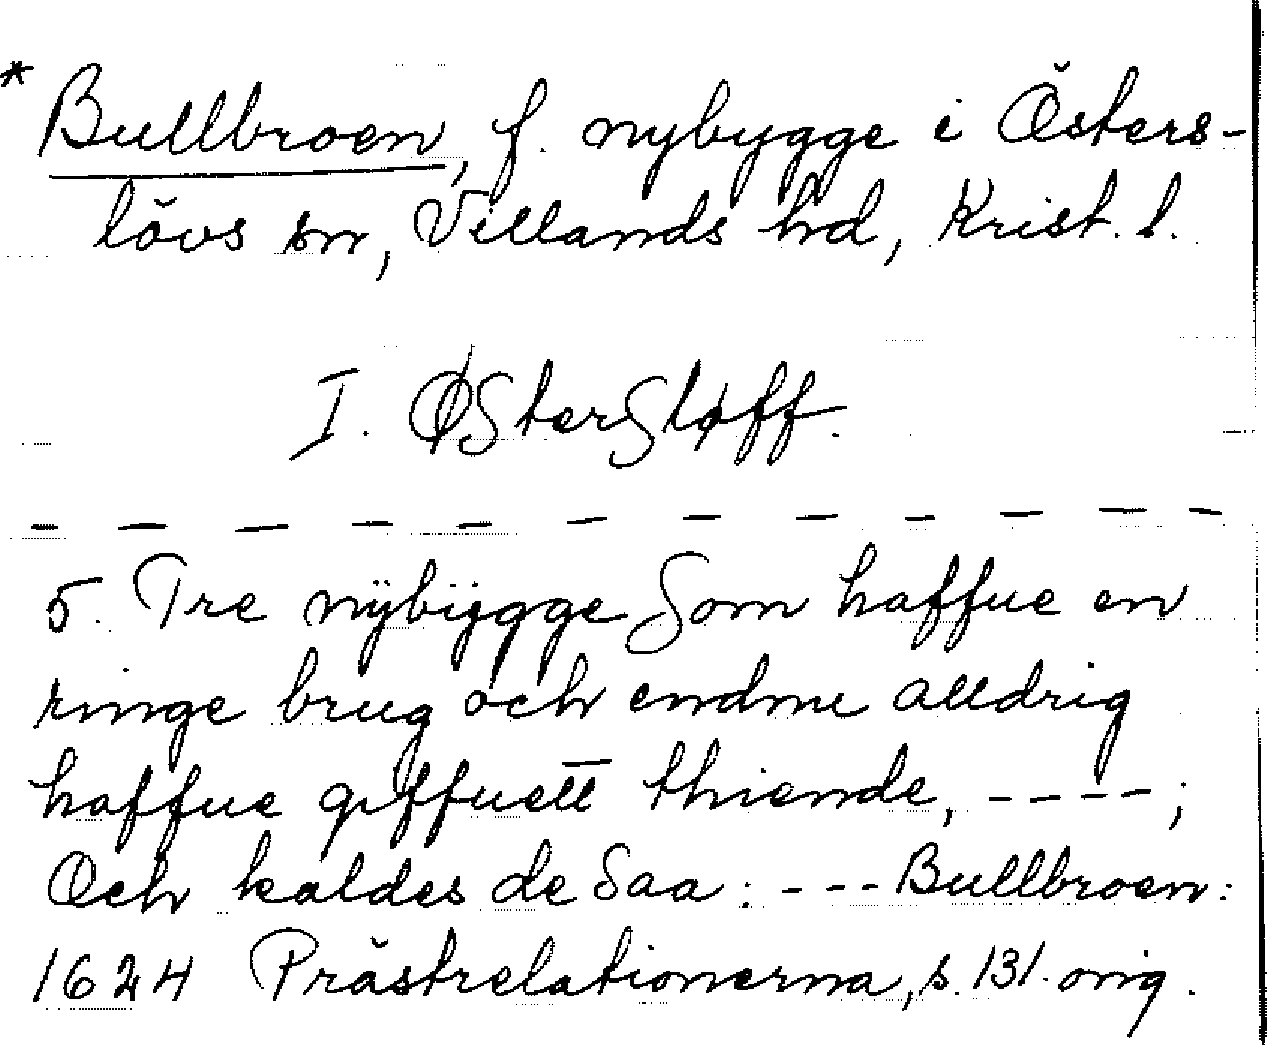 * Bullbroen, f. nybygge i Östers-
lövs sn, Villands hd, Krist. l.
I. ØSterSløff.
- - - - - - - - - - - -
5. Tre nÿbÿgge Som haffue en
ringe brug och endnu alldrig
haffue giffuett thiende, - - - -;
Och kaldes de Saa: - - - Bullbroen:
1624 Prästrelationerna, s. 131. orig.